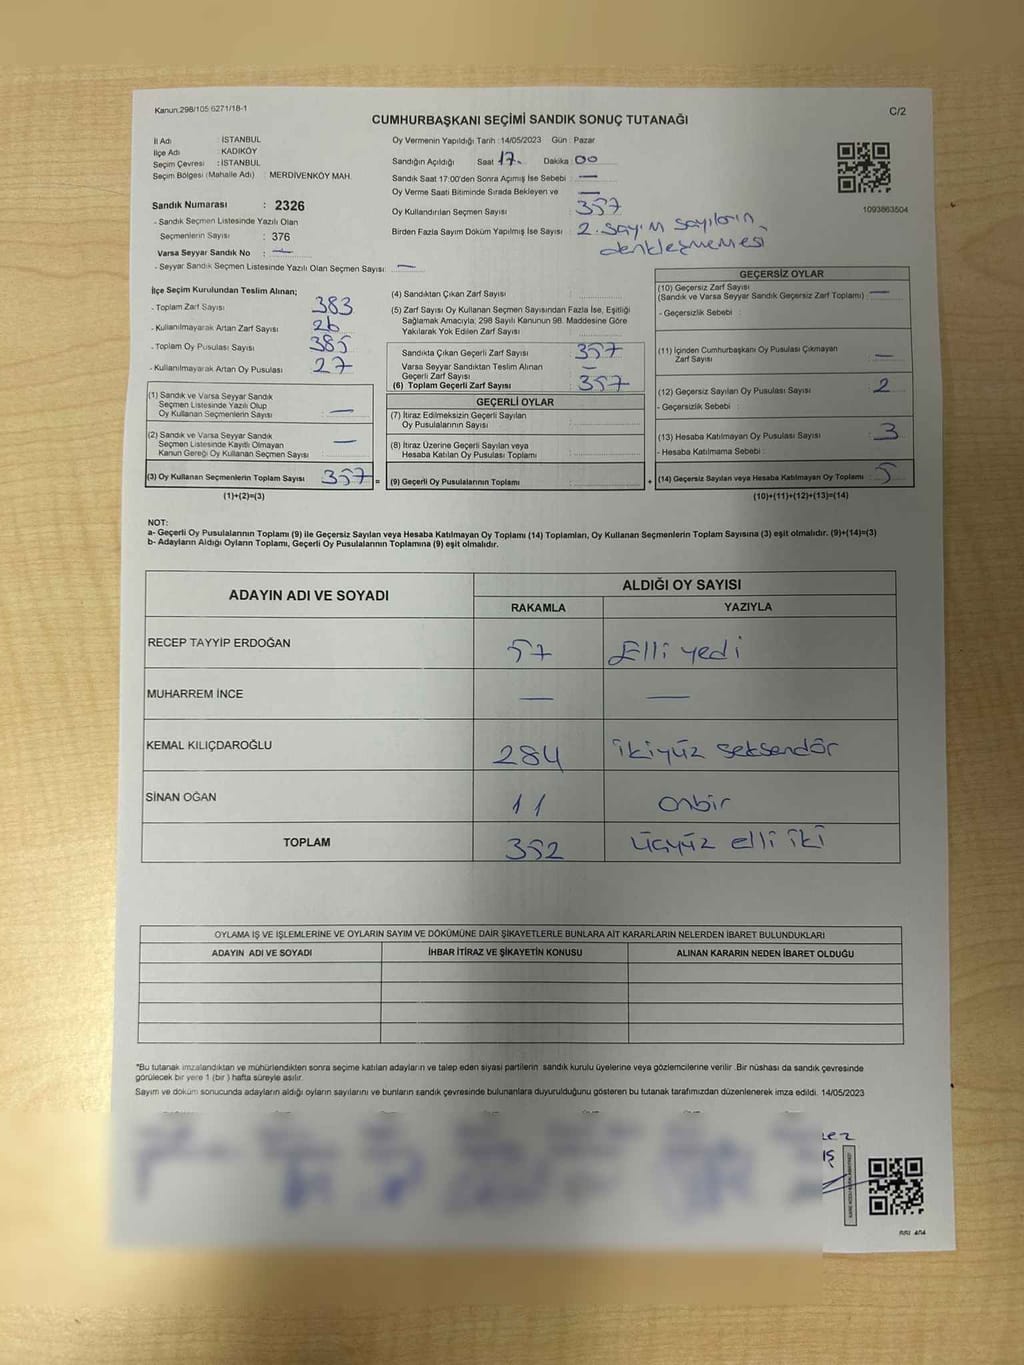 Kanun:298/105 6271/18-1
C/2
CUMHURBAŞKANI SEÇİMİ SANDIK SONUÇ TUTANAĞI
İl Adı : İSTANBUL
İlçe Adı : KADIKÖY
Seçim Çevresi : İSTANBUL
Seçim Bölgesi (Mahalle Adı) : MERDİVENKÖY MAH.
Sandık Numarası : 2326
- Sandık Seçmen Listesinde Yazılı Olan
Seçmenlerin Sayısı : 376
Varsa Seyyar Sandık No : —
- Seyyar Sandık Seçmen Listesinde Yazılı Olan Seçmen Sayısı: —
Oy Vermenin Yapıldığı Tarih : 14/05/2023 Gün : Pazar
Sandığın Açıldığı Saat 17. Dakika : 00
Sandık Saat 17:00'den Sonra Açımış İse Sebebi : —
Oy Verme Saati Bitiminde Sırada Bekleyen ve —
Oy Kullandırılan Seçmen Sayısı : 357
Birden Fazla Sayım Döküm Yapılmış İse Sayısı : 2. sayım sayıların
denkleşmemesi
1093863504
İlçe Seçim Kurulundan Teslim Alınan;
- Toplam Zarf Sayısı : 383
- Kullanılmayarak Artan Zarf Sayısı : 26
- Toplam Oy Pusulası Sayısı : 385
- Kullanılmayarak Artan Oy Pusulası : 27
(1) Sandık ve Varsa Seyyar Sandık
Seçmen Listesinde Yazılı Olup
Oy Kullanan Seçmenlerin Sayısı : —
(2) Sandık ve Varsa Seyyar Sandık
Seçmen Listesinde Kayıtlı Olmayan
Kanun Gereği Oy Kullanan Seçmen Sayısı : —
(3) Oy Kullanan Seçmenlerin Toplam Sayısı : 357 =
(1)+(2)=(3)
(4) Sandıktan Çıkan Zarf Sayısı :
(5) Zarf Sayısı Oy Kullanan Seçmen Sayısından Fazla İse, Eşitliği
Sağlamak Amacıyla; 298 Sayılı Kanunun 98. Maddesine Göre
Yakılarak Yok Edilen Zarf Sayısı :
Sandıkta Çıkan Geçerli Zarf Sayısı : 357
Varsa Seyyar Sandıktan Teslim Alınan
Geçerli Zarf Sayısı : —
(6) Toplam Geçerli Zarf Sayısı : 357
GEÇERLİ OYLAR
(7) İtiraz Edilmeksizin Geçerli Sayılan
Oy Pusulalarının Sayısı :
(8) İtiraz Üzerine Geçerli Sayılan veya
Hesaba Katılan Oy Pusulası Toplamı :
(9) Geçerli Oy Pusulalarının Toplamı : +
GEÇERSİZ OYLAR
(10) Geçersiz Zarf Sayısı
(Sandık ve Varsa Seyyar Sandık Geçersiz Zarf Toplamı) : —
- Geçersizlik Sebebi :
(11) İçinden Cumhurbaşkanı Oy Pusulası Çıkmayan
Zarf Sayısı : —
(12) Geçersiz Sayılan Oy Pusulası Sayısı : 2
- Geçersizlik Sebebi :
(13) Hesaba Katılmayan Oy Pusulası Sayısı : 3
- Hesaba Katılmama Sebebi :
(14) Geçersiz Sayılan veya Hesaba Katılmayan Oy Toplamı : 5
(10)+(11)+(12)+(13)=(14)
NOT:
a- Geçerli Oy Pusulalarının Toplamı (9) ile Geçersiz Sayılan veya Hesaba Katılmayan Oy Toplamı (14) Toplamları, Oy Kullanan Seçmenlerin Toplam Sayısına (3) eşit olmalıdır. (9)+(14)=(3)
b- Adayların Aldığı Oyların Toplamı, Geçerli Oy Pusulalarının Toplamına (9) eşit olmalıdır.
ADAYIN ADI VE SOYADI
ALDIĞI OY SAYISI
RAKAMLA YAZIYLA
RECEP TAYYİP ERDOĞAN 57 Elli yedi
MUHARREM İNCE — —
KEMAL KILIÇDAROĞLU 284 ikiyüz seksendör
SİNAN OĞAN 11 onbir
TOPLAM 352 üçyüz elli iki
OYLAMA İŞ VE İŞLEMLERİNE VE OYLARIN SAYIM VE DÖKÜMÜNE DAİR ŞİKAYETLERLE BUNLARA AİT KARARLARIN NELERDEN İBARET BULUNDUKLARI
ADAYIN ADI VE SOYADI İHBAR İTİRAZ VE ŞİKAYETİN KONUSU ALINAN KARARIN NEDEN İBARET OLDUĞU
*Bu tutanak imzalandıktan ve mühürlendikten sonra seçime katılan adayların ve talep eden siyasi partilerin sandık kurulu üyelerine veya gözlemcilerine verilir .Bir nüshası da sandık çevresinde
görülecek bir yere 1 (bir ) hafta süreyle asılır.
Sayım ve döküm sonucunda adayların aldığı oyların sayılarını ve bunların sandık çevresinde bulunanlara duyurulduğunu gösteren bu tutanak tarafımızdan düzenlenerek imza edildi. 14/05/2023